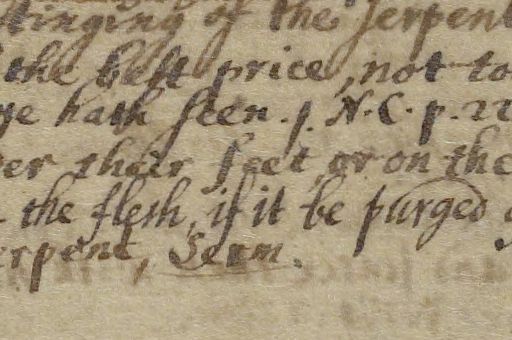 stinging of the serpent
the best price, not to
ye hath seen. J. N.C. p. 22
er their feet, or on the
the flesh, if it be purged
erpent, Serm.